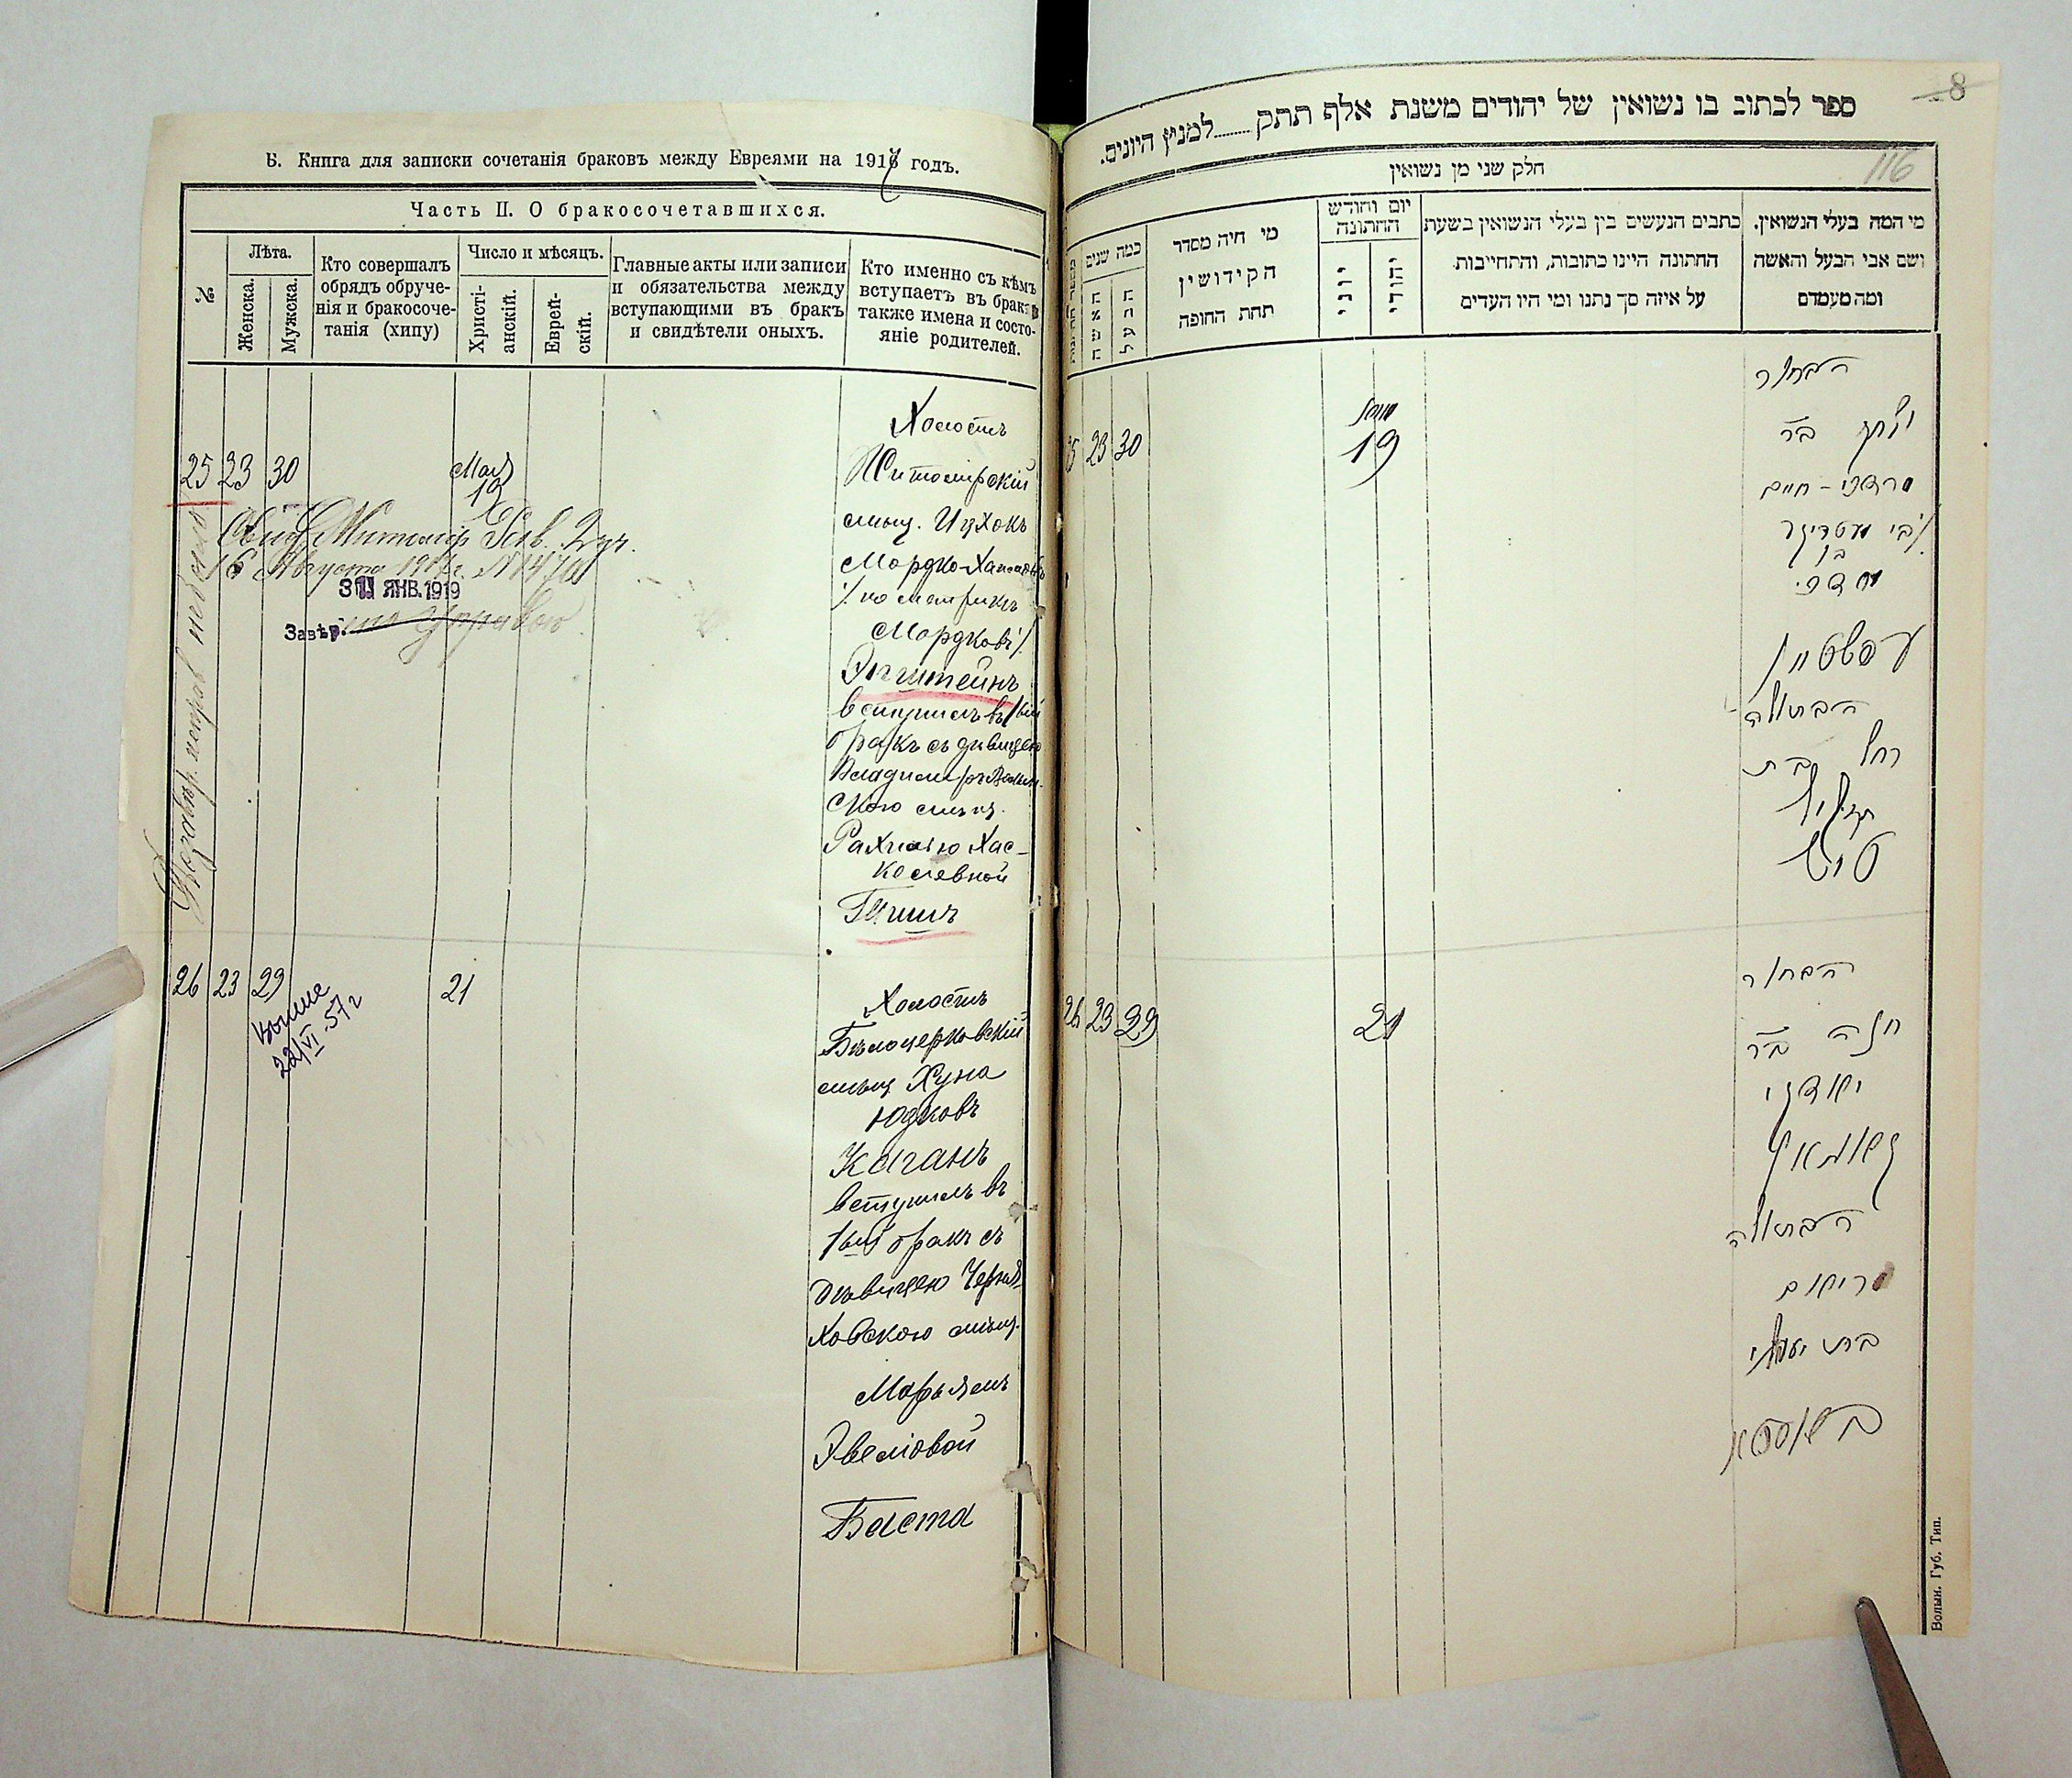 Б. Книга для записки сочетанія браковъ между Евреями на 1917 годъ.
Часть II. О бракосочетавшихся.
№
Лѣта.
Женска.
Мужска.
Кто совершалъ
обрядъ обруче-
нія и бракосоче-
танія (хипу)
Число и мѣсяцъ.
Христі-
анскій.
Еврей-
скій.
Главные акты или записи
и обязательства между
вступающими въ бракъ
и свидѣтели оныхъ.
Кто именно съ кѣмъ
вступаетъ въ бракъ
также имена и состо-
яніе родителей.
25 23 30
Мая
19
Холостъ
Житомірскій
мѣщ. Ицхокъ
Мордко-Хаимовъ
/: по метрикѣ
Мордковъ :/
Эпштейнъ
вступилъ въ 1ый
бракъ съ дѣвицею
Владиміръ-Волын.
скою мѣщ.
Рахилью Хас-
келевной
Тишъ
16 Августа 1917 г. № 1470
31 ЯНВ. 1919
Завѣр.
26 23 29
21
22/VI.57 г
Холостъ
Бѣлоцерковскій
мѣщ Хуна
Юдковъ
Каганъ
вступилъ въ
1ый бракъ съ
дѣвицею Черня-
ховскою мѣщ.
Марьямъ
Эвелювой
Баста
8
116
ספר לכתוב בו נשואין של יהודים משנת אלף תתק למנין היונים.
חלק שני מן נשואין
כמה שנים
האשה
הבעל
מי היה מסדר
הקידושין
תחת החופה
יום וחודש
החתונה
יוני
יהודי
כתבים הנעשים בין בעלי הנשואין בשעת
החתונה היינו כתובות, והתחייבות
על איזה סך נתנו ומי היו העדים
מי המה בעלי הנשואין.
ושם אבי הבעל והאשה
ומה מעמדם
25 23 30
מאי
19
הבחור
יצחק בר
מרדכי-חיים
בן
מרדכי
עפשטיין
הבתולה
רחל בת
יחזקאל
טיש
26 23 29
21
הבחור
חונה בר
יודקי
הבתולה
מרים
בת
באסטא
Волын. Губ. Тип.